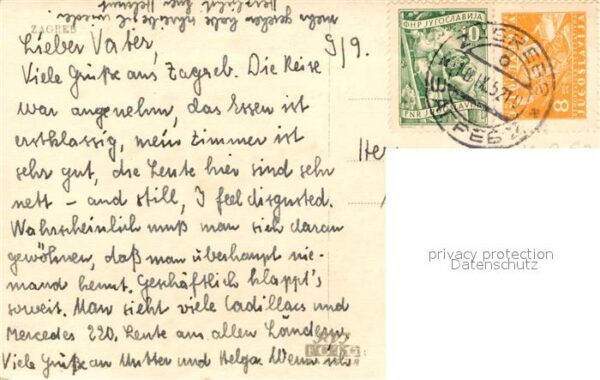 ZAGREB
Lieber Vater, 9/9.
Viele Grüße aus Zagreb. Die Reise
war angenehm, das Essen ist
erstklassig, mein Zimmer ist
sehr gut, die Leute hier sind sehr
nett - and still, I feel disgusted.
Wahrscheinlich muß man sich daran
gewöhnen, daß man überhaupt nie-
mand kennt. Geschäftlich klappt's
soweit. Man sieht viele Cadillacs und
Mercedes 220. Leute aus allen Ländern.
Viele Grüße an Mutter und Helga. Wenn ich
mehr gesehen habe schreibe ich wieder
Herzlichst Euer Helmut
ФНР ЈУГОСЛАВИЈА
10
FNR JUGOSLAVIJA
JUGOSLAVIJA
8
ZAGREB
Her
privacy protection
Datenschutz